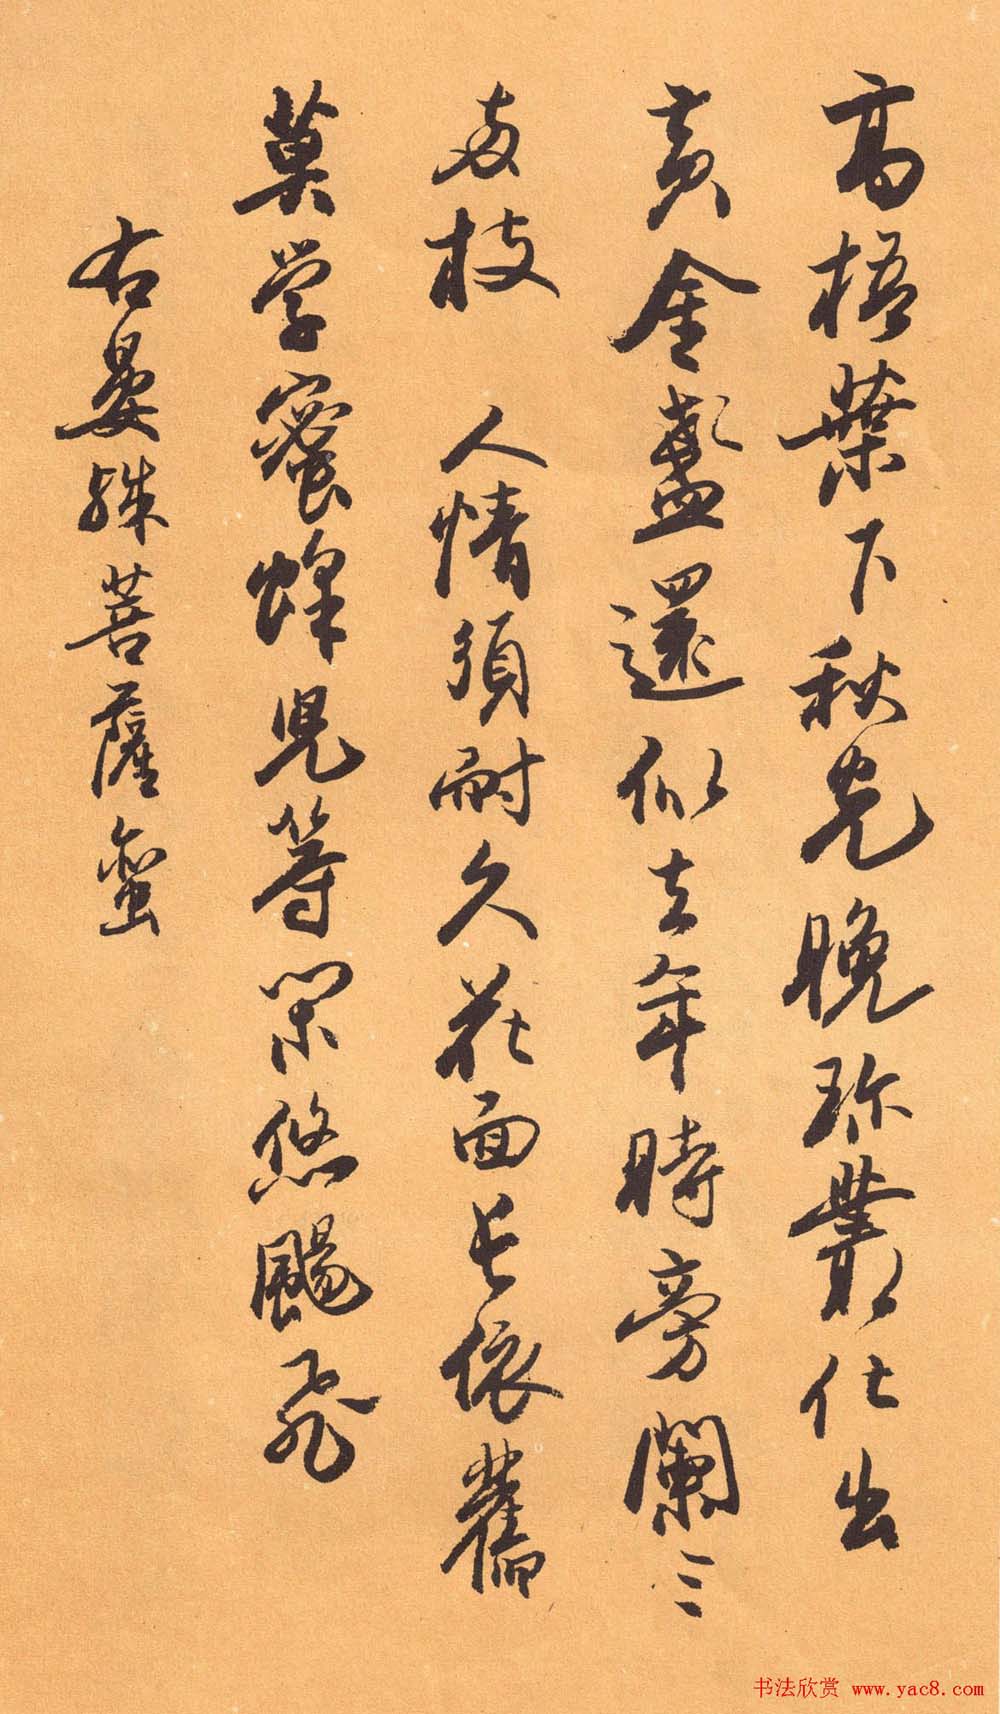 高梧葉下秋光晚珍叢化出
黄金盞還似去年時旁闌三
两枝 人情須耐久花面長依舊
莫学蜜蜂兒等閑悠颺飛
右晏殊菩薩蠻
书法欣赏 www.yac8.com